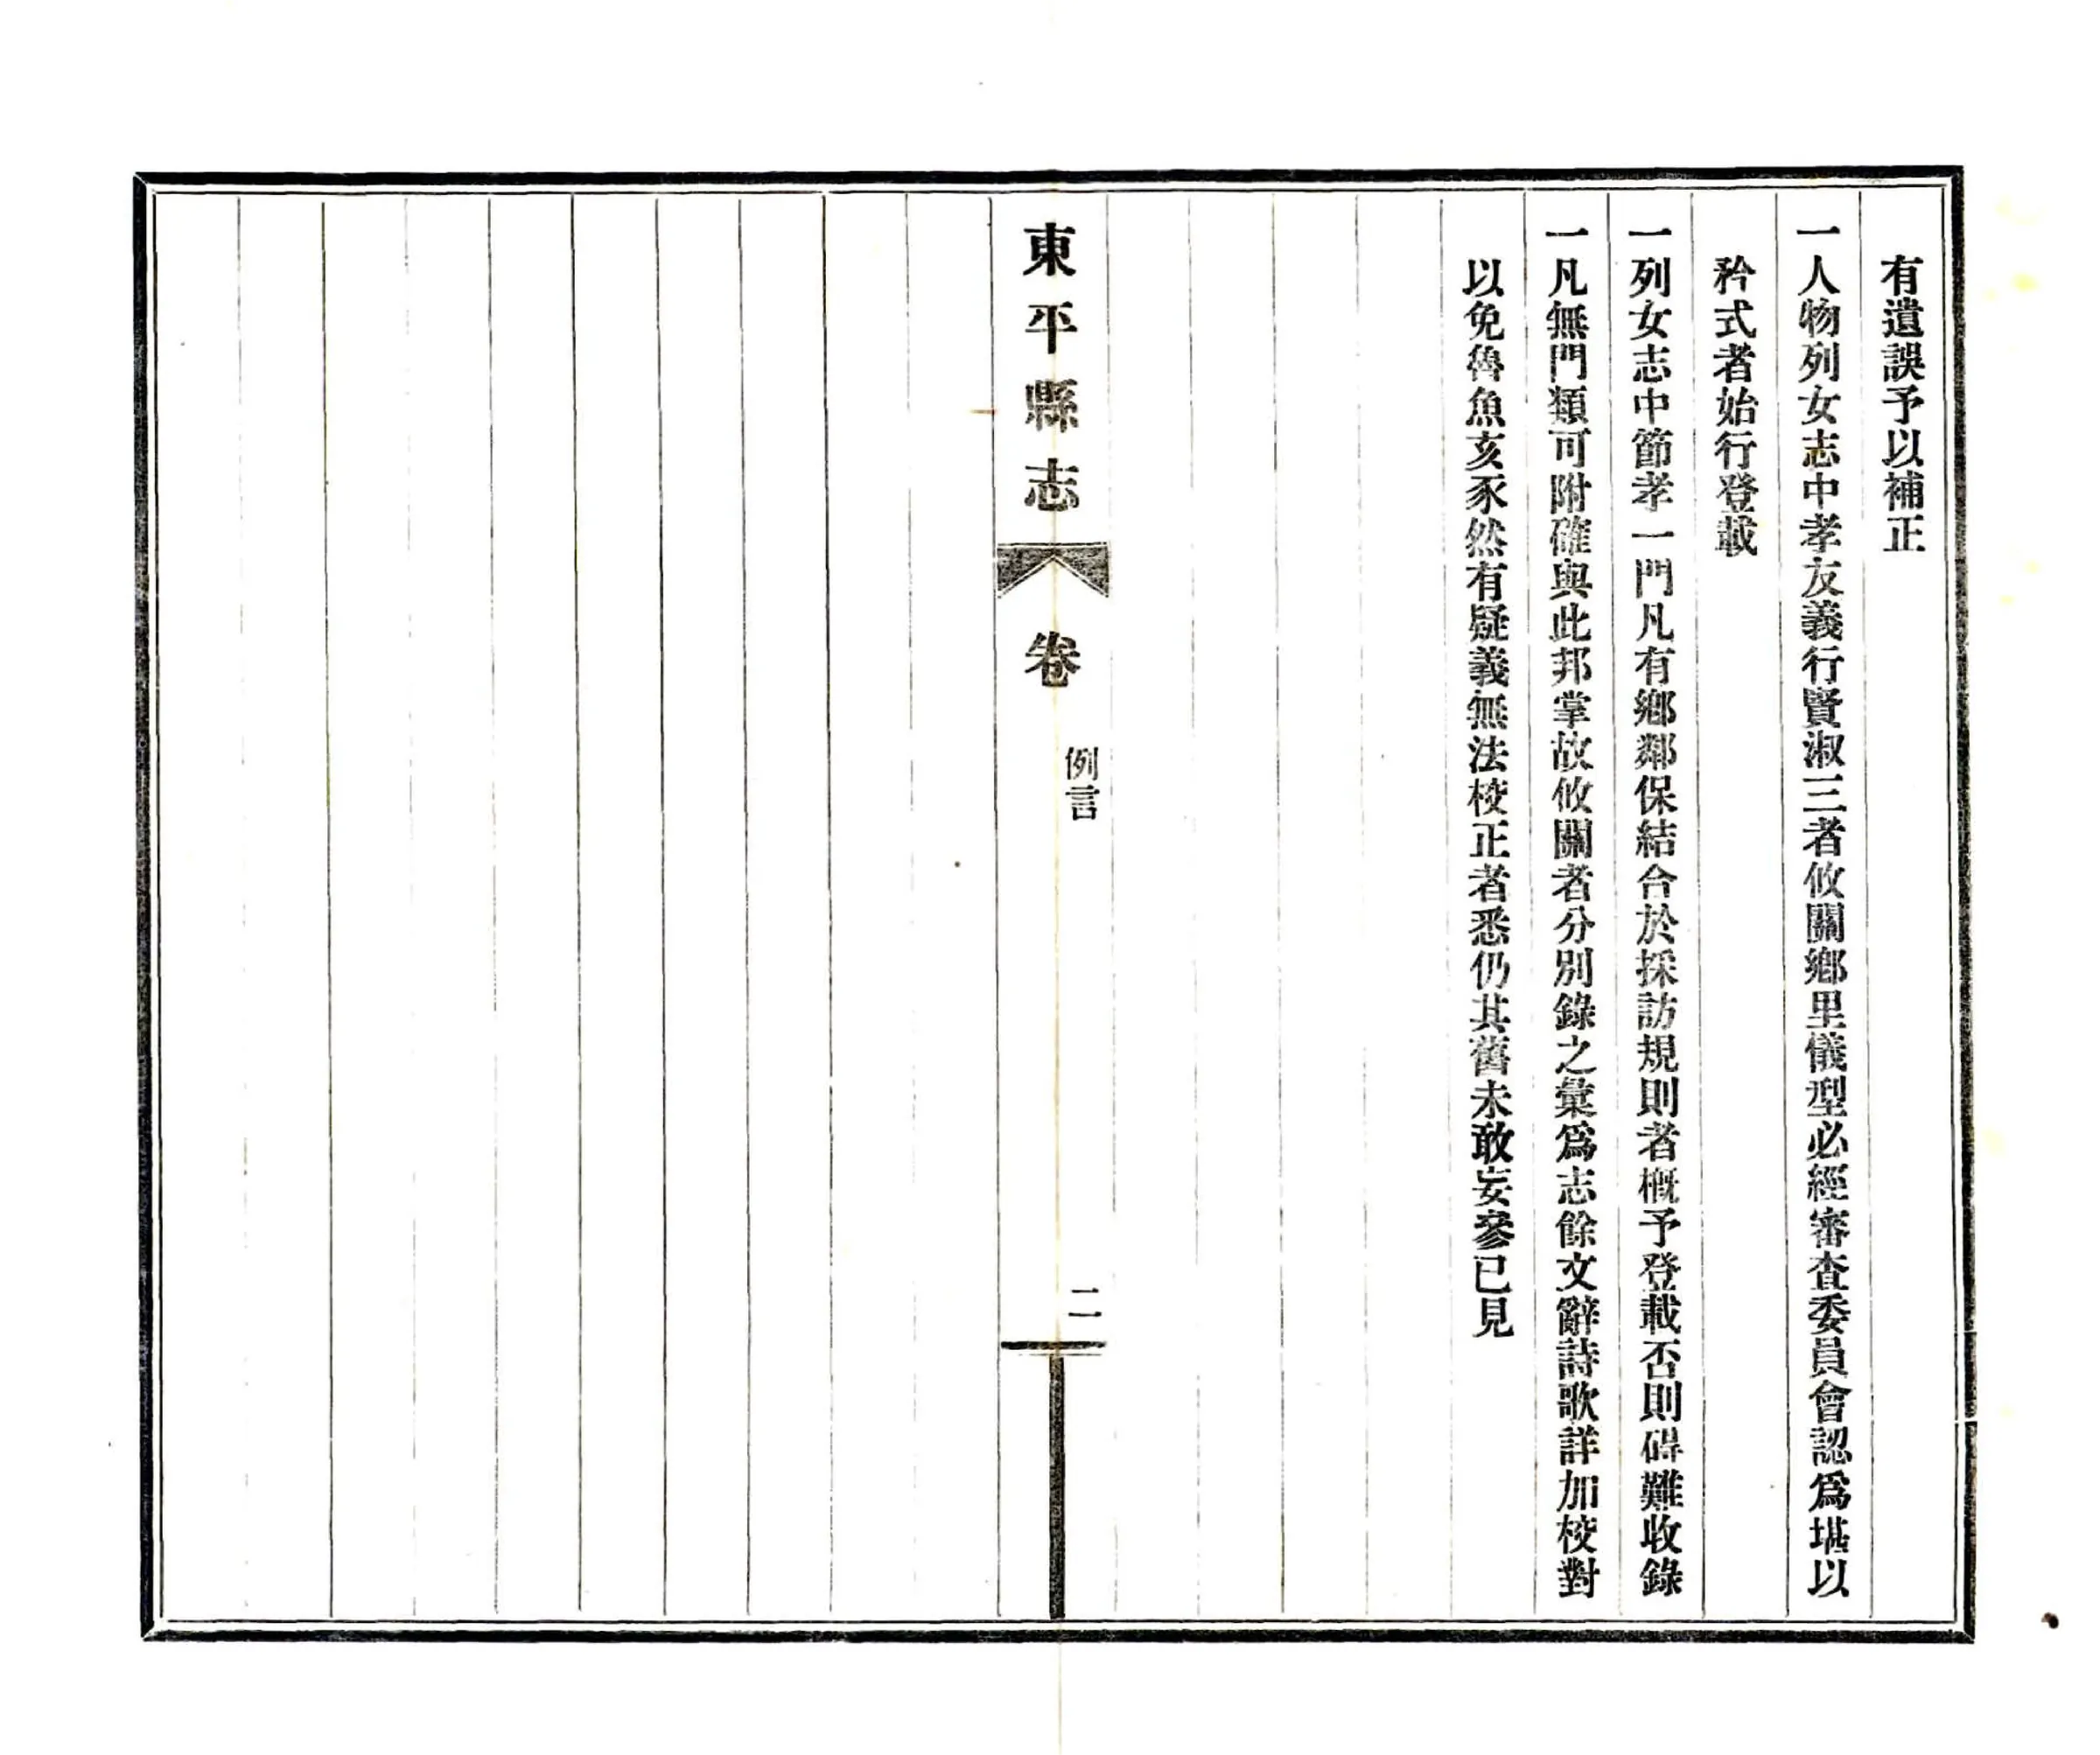 有遺誤予以補正
一人物列女志中孝友義行賢淑三者攸關鄉里儀型必經審查委員會認爲堪以
矜式者始行登載
一列女志中節孝一門凡有鄉鄰保結合於採訪規則者槪予登載否則碍難收錄
一凡無門類可附確與此邦掌故攸關者分別錄之彙爲志餘文辭詩歌詳加校對
以免魯魚亥豕然有疑義無法校正者悉仍其舊未敢妄參已見
東平縣志
卷
例言
二